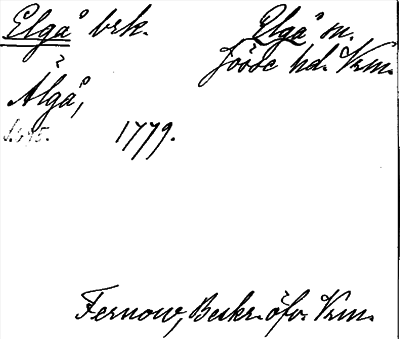 Elgå brk.
Elgå sn.
Jösse hd. Vrm.
Älgå,
1779.
Fernow, Beskr. öfv. Vrm.